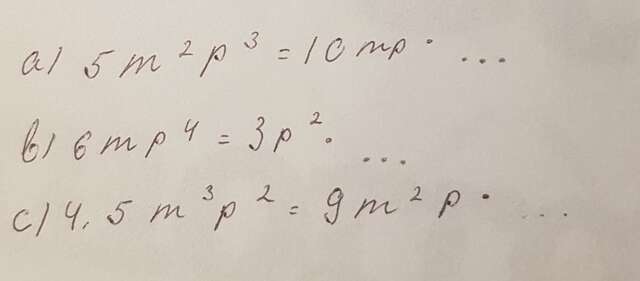 a) 5m²p³ = 10mp· ...
b) 6mp⁴ = 3p²· ...
c) 4,5m³p² = 9m²p· ...